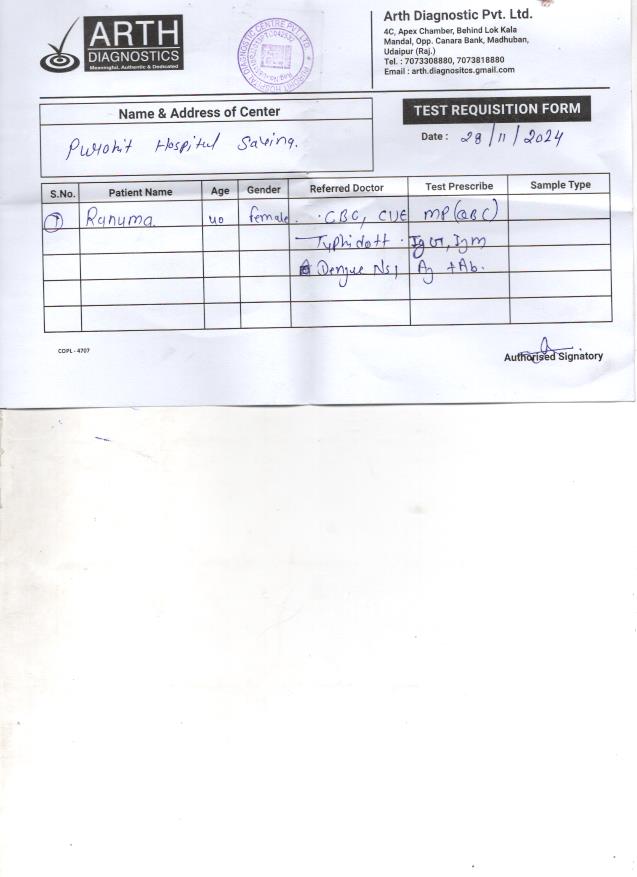 ARTH
DIAGNOSTICS
Meaningful, Authentic & Dedicated
Arth Diagnostic Pvt. Ltd.
4C, Apex Chamber, Behind Lok Kala
Mandal, Opp. Canara Bank, Madhuban,
Udaipur (Raj.)
Tel. : 7073308880, 7073818880
Email : arth.diagnositcs.gmail.com
Name & Address of Center
Purohit Hospital
TEST REQUISITION FORM
Date : 28/11/2024
S.No. Patient Name Age Gender Referred Doctor Test Prescribe Sample Type
1 Ranuma 40 female. CBC, CUE MP (QBC)
Typhidott IgG, Igm
Dengue Ns1 Ag +Ab.
CDPL - 4707
Authorised Signatory